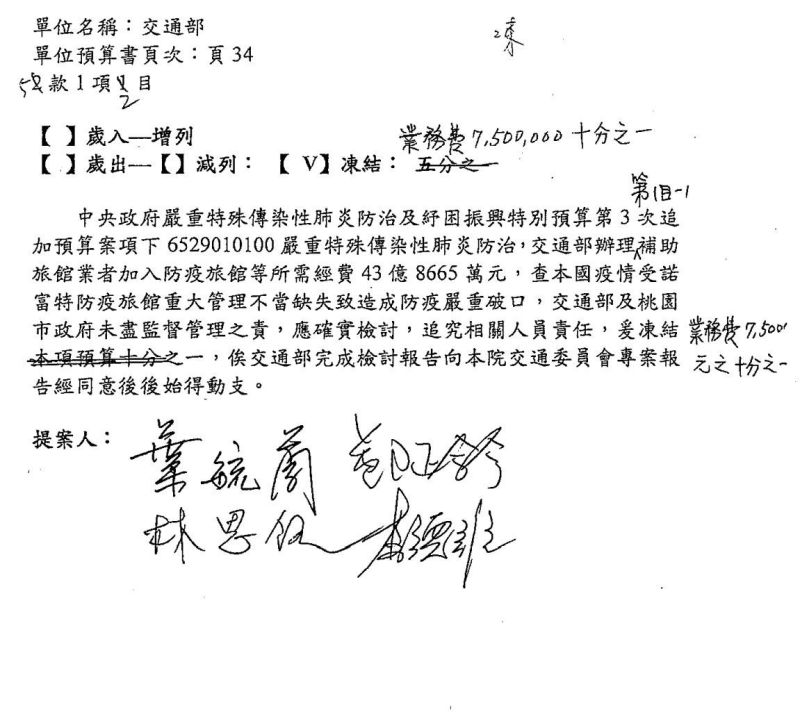 凍
單位名稱：交通部
單位預算書頁次：頁 34
款 1 項 2 目
【 】歲入—增列
業務費 7,500,000 十分之一
【 】歲出—【】減列：【 V】凍結：五分之一
第1目-1
中央政府嚴重特殊傳染性肺炎防治及紓困振興特別預算第 3 次追
加預算案項下 6529010100 嚴重特殊傳染性肺炎防治，交通部辦理補助
旅館業者加入防疫旅館等所需經費 43 億 8665 萬元，查本國疫情受諾
富特防疫旅館重大管理不當缺失致造成防疫嚴重破口，交通部及桃園
市政府未盡監督管理之責，應確實檢討，追究相關人員責任，爰凍結
業務費7,500
本項預算十分之一，俟交通部完成檢討報告向本院交通委員會專案報
元之十分之一
告經同意後後始得動支。
提案人：
葉毓蘭
林思銘 李德維